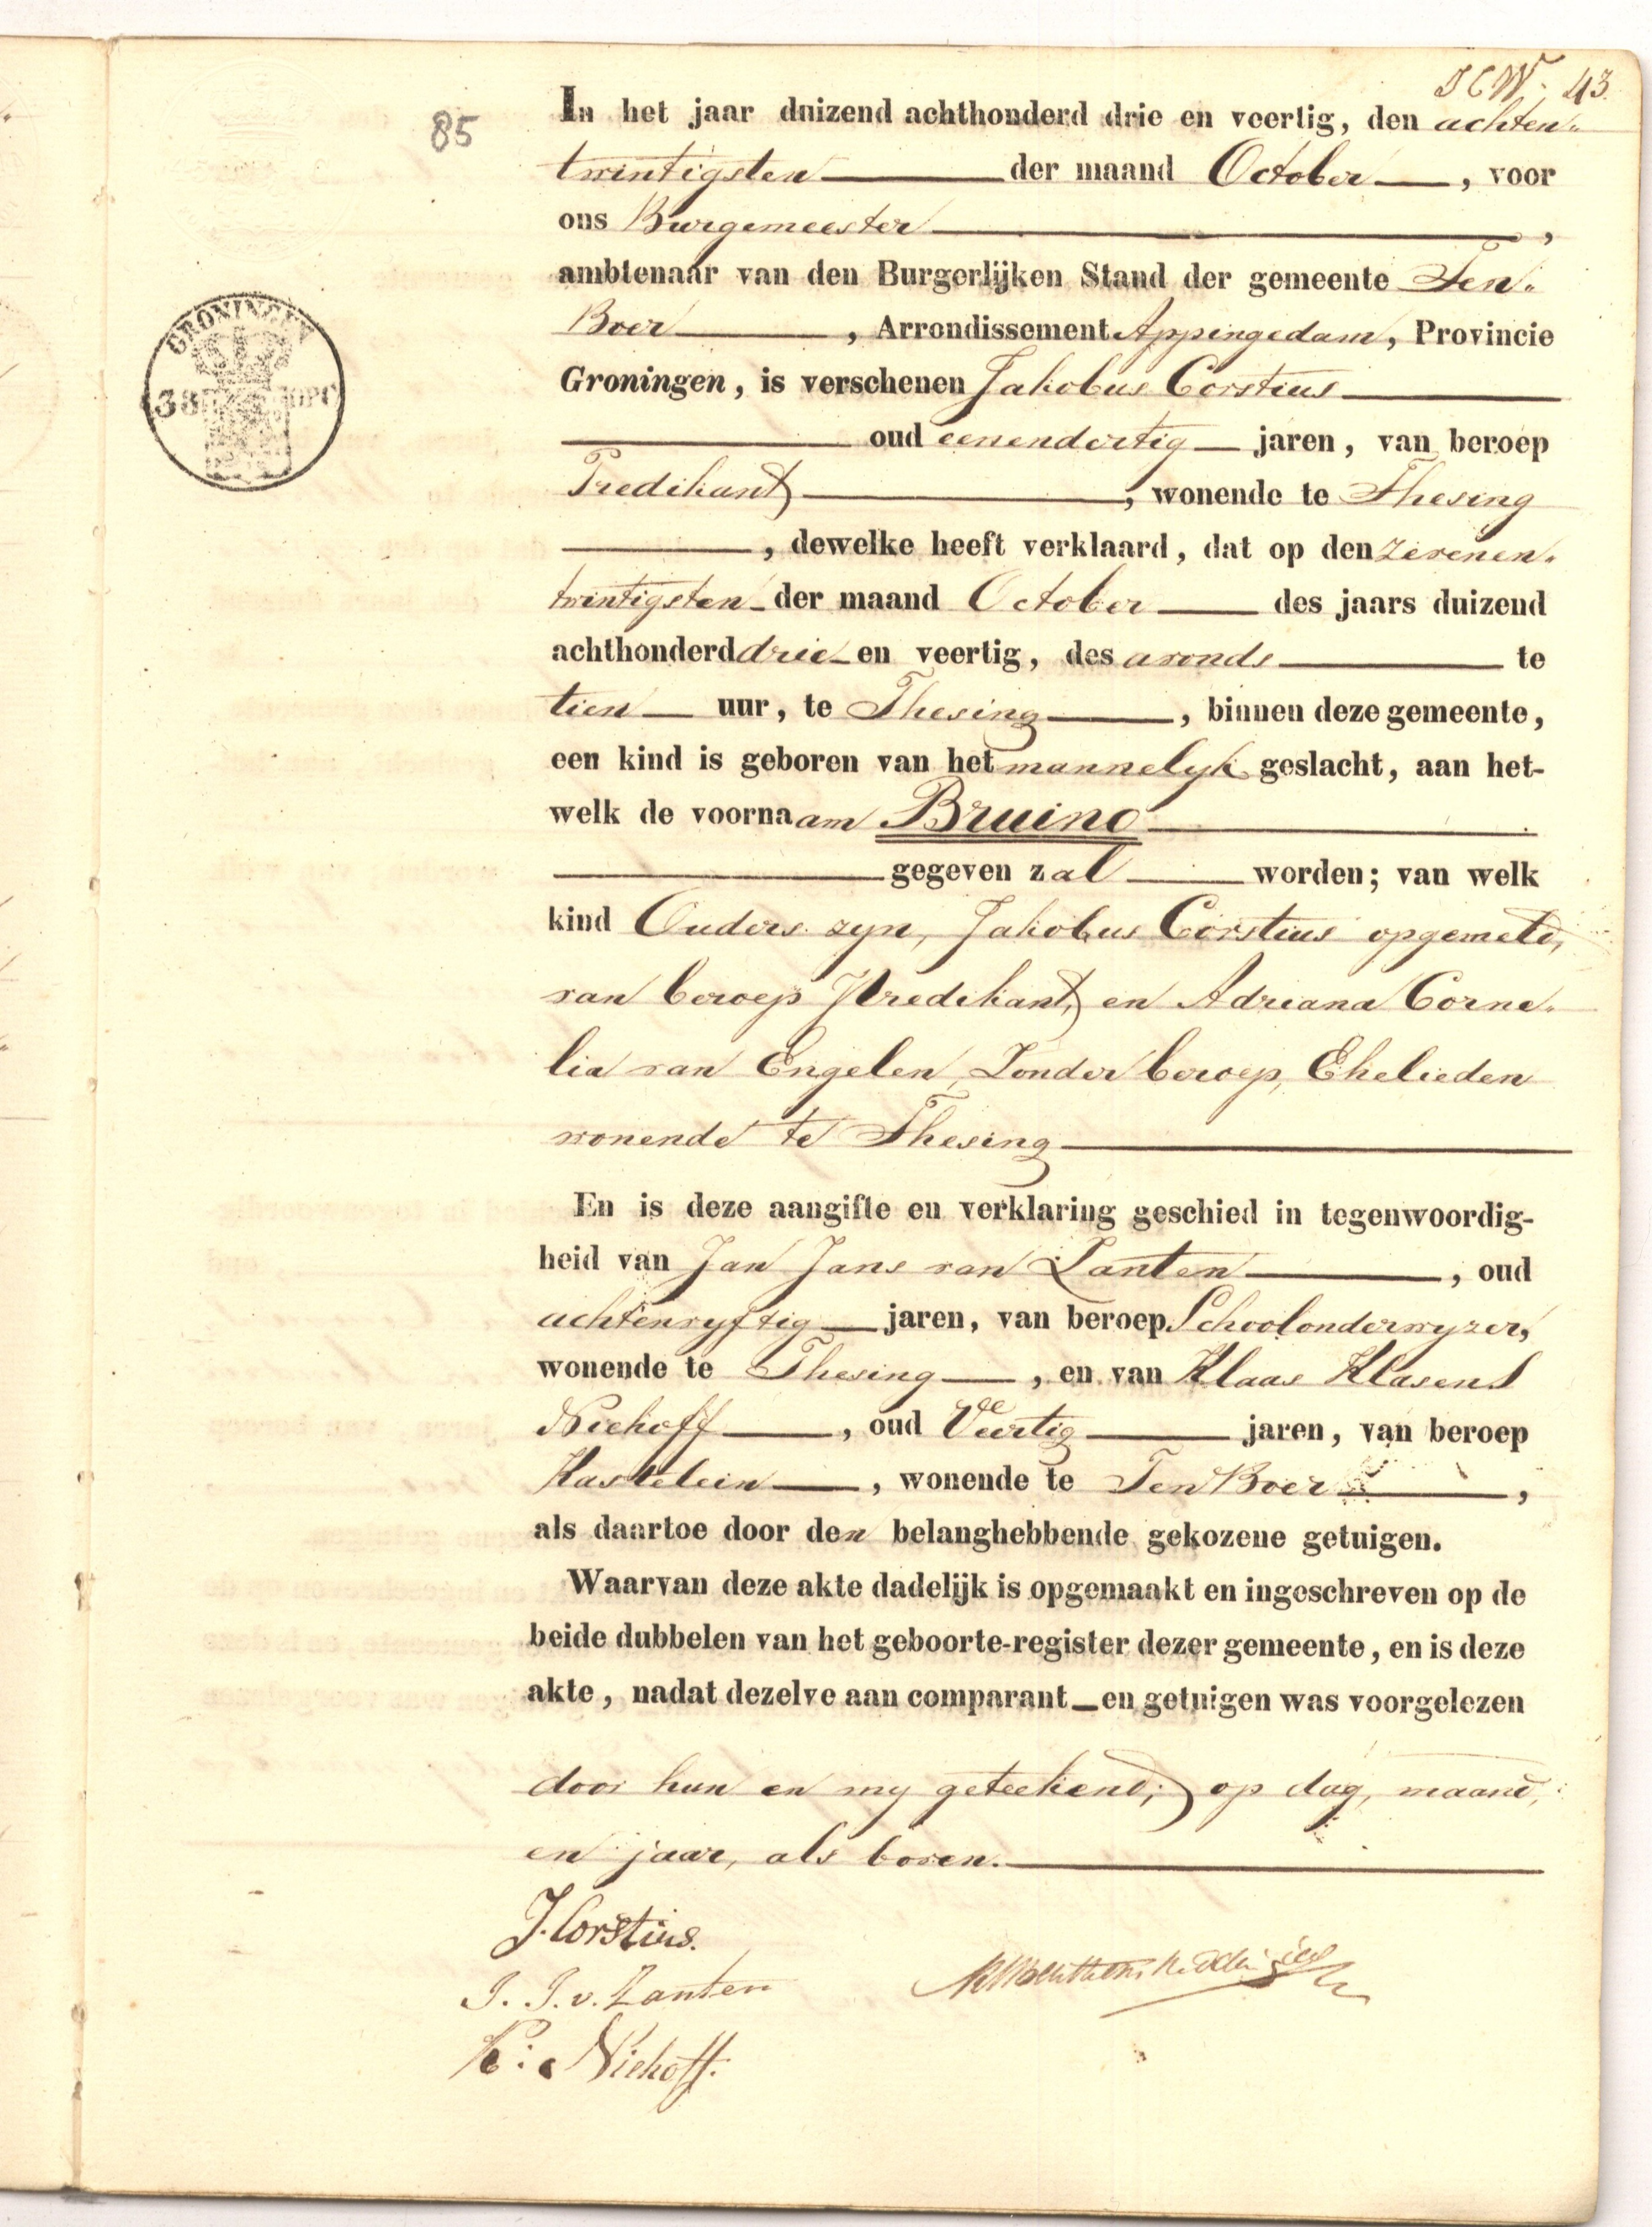 JCW. 43.
85
In het jaar duizend achthonderd drie en veertig, den achten-
twintigsten der maand October, voor
ons Burgemeester,
ambtenaar van den Burgerlijken Stand der gemeente Ten-
Boer, Arrondissement Appingedam, Provincie
Groningen, is verschenen Jakobus Corstius
oud eenendertig jaren, van beroep
Predikant, wonende te Thesing
, dewelke heeft verklaard, dat op den zevenen-
twintigsten der maand October des jaars duizend
achthonderd drie en veertig, des avonds te
tien uur, te Thesing, binnen deze gemeente,
een kind is geboren van het mannelyk geslacht, aan het-
welk de voornaam Bruino
gegeven zal worden; van welk
kind Ouders zyn, Jakobus Corstius opgemeld,
van beroep Predikant, en Adriana Corne-
lia van Engelen, Zonder beroep, Ehelieden
wonende te Thesing
En is deze aangifte en verklaring geschied in tegenwoordig-
heid van Jan Jans van Zanten, oud
achtenvyftig jaren, van beroep Schoolonderwyzer,
wonende te Thesing, en van Klaas Klasens
Niehoff, oud Veertig jaren, van beroep
Kastelein, wonende te Ten Boer,
als daartoe door den belanghebbende gekozene getuigen.
Waarvan deze akte dadelijk is opgemaakt en ingeschreven op de
beide dubbelen van het geboorte-register dezer gemeente, en is deze
akte, nadat dezelve aan comparant en getuigen was voorgelezen
door hun en my geteekend; op dag, maand,
en jaar, als boven.
J. Corstius.
J. J. v. Zanten
K: Niehoff.
GRONINGEN
38